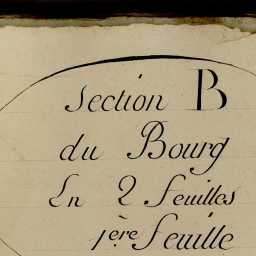 Section B
du Bourg
En 2 feuilles
1ère feuille